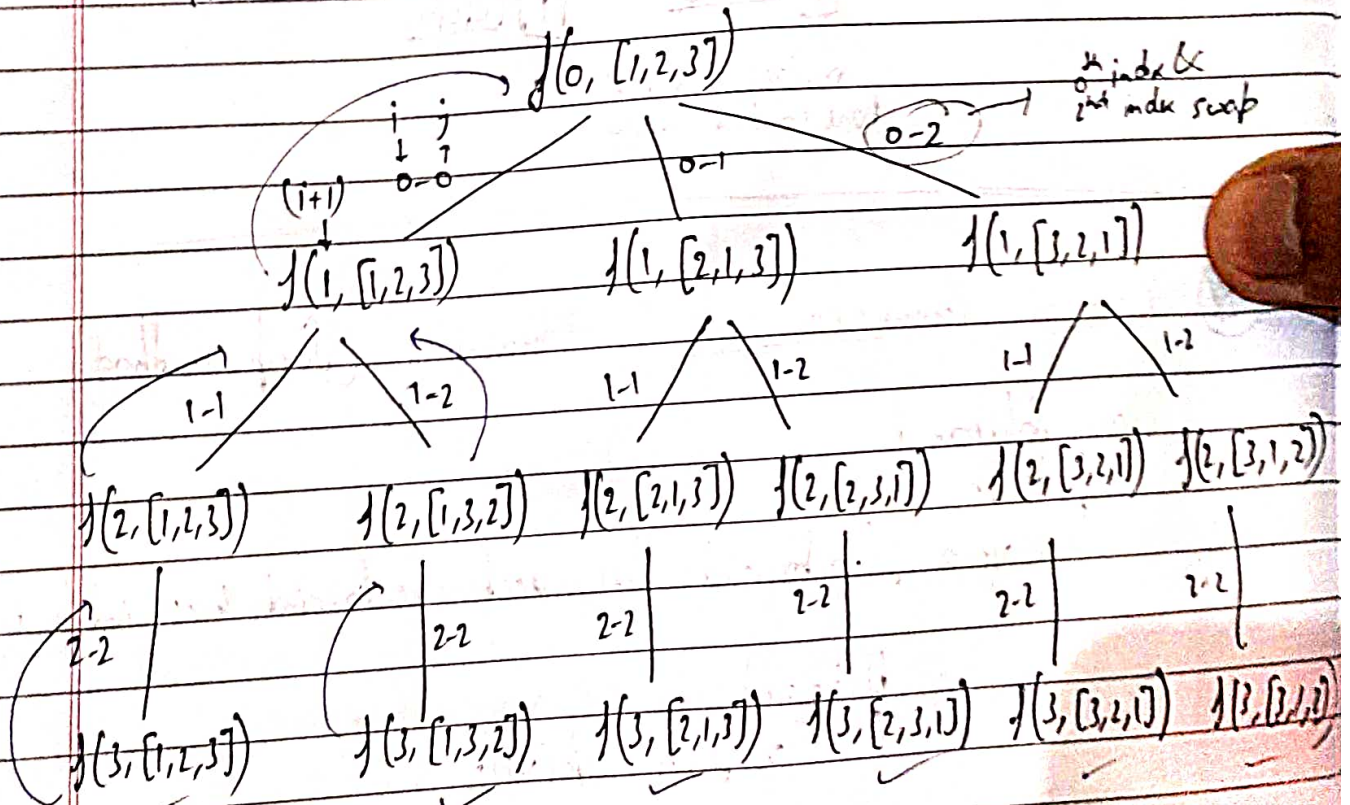 f(0, [1,2,3])
0th index &
2nd index swap
i j
0-0
0-1
0-2
(i+1)
f(1, [1,2,3]) f(1, [2,1,3]) f(1, [3,2,1])
1-1 1-2 1-1 1-2 1-1 1-2
f(2, [1,2,3]) f(2, [1,3,2]) f(2, [2,1,3]) f(2, [2,3,1]) f(2, [3,2,1]) f(2, [3,1,2])
2-2 2-2 2-2 2-2 2-2 2-2
f(3, [1,2,3]) f(3, [1,3,2]) f(3, [2,1,3]) f(3, [2,3,1]) f(3, [3,2,1]) f(3, [3,1,2])